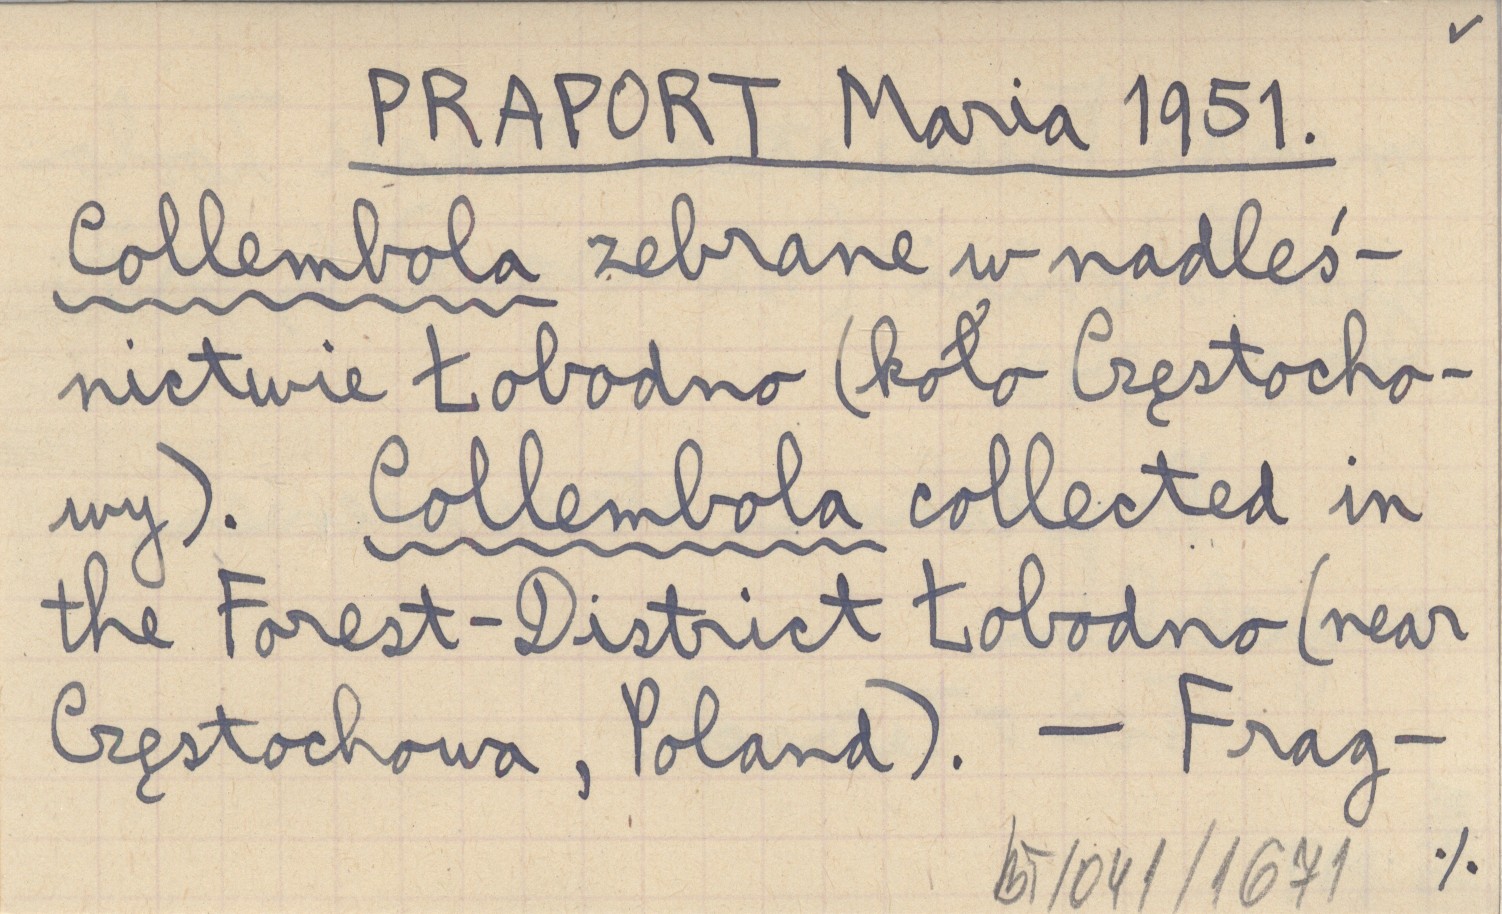 ✓
PRAPORT Maria 1951.
Collembola zebrane w nadleś-
nictwie Łobodno (koło Częstocho-
wy). Collembola collected in
the Forest-District Łobodno (near
Częstochowa, Poland). — Frag-
/041/1671 ./.